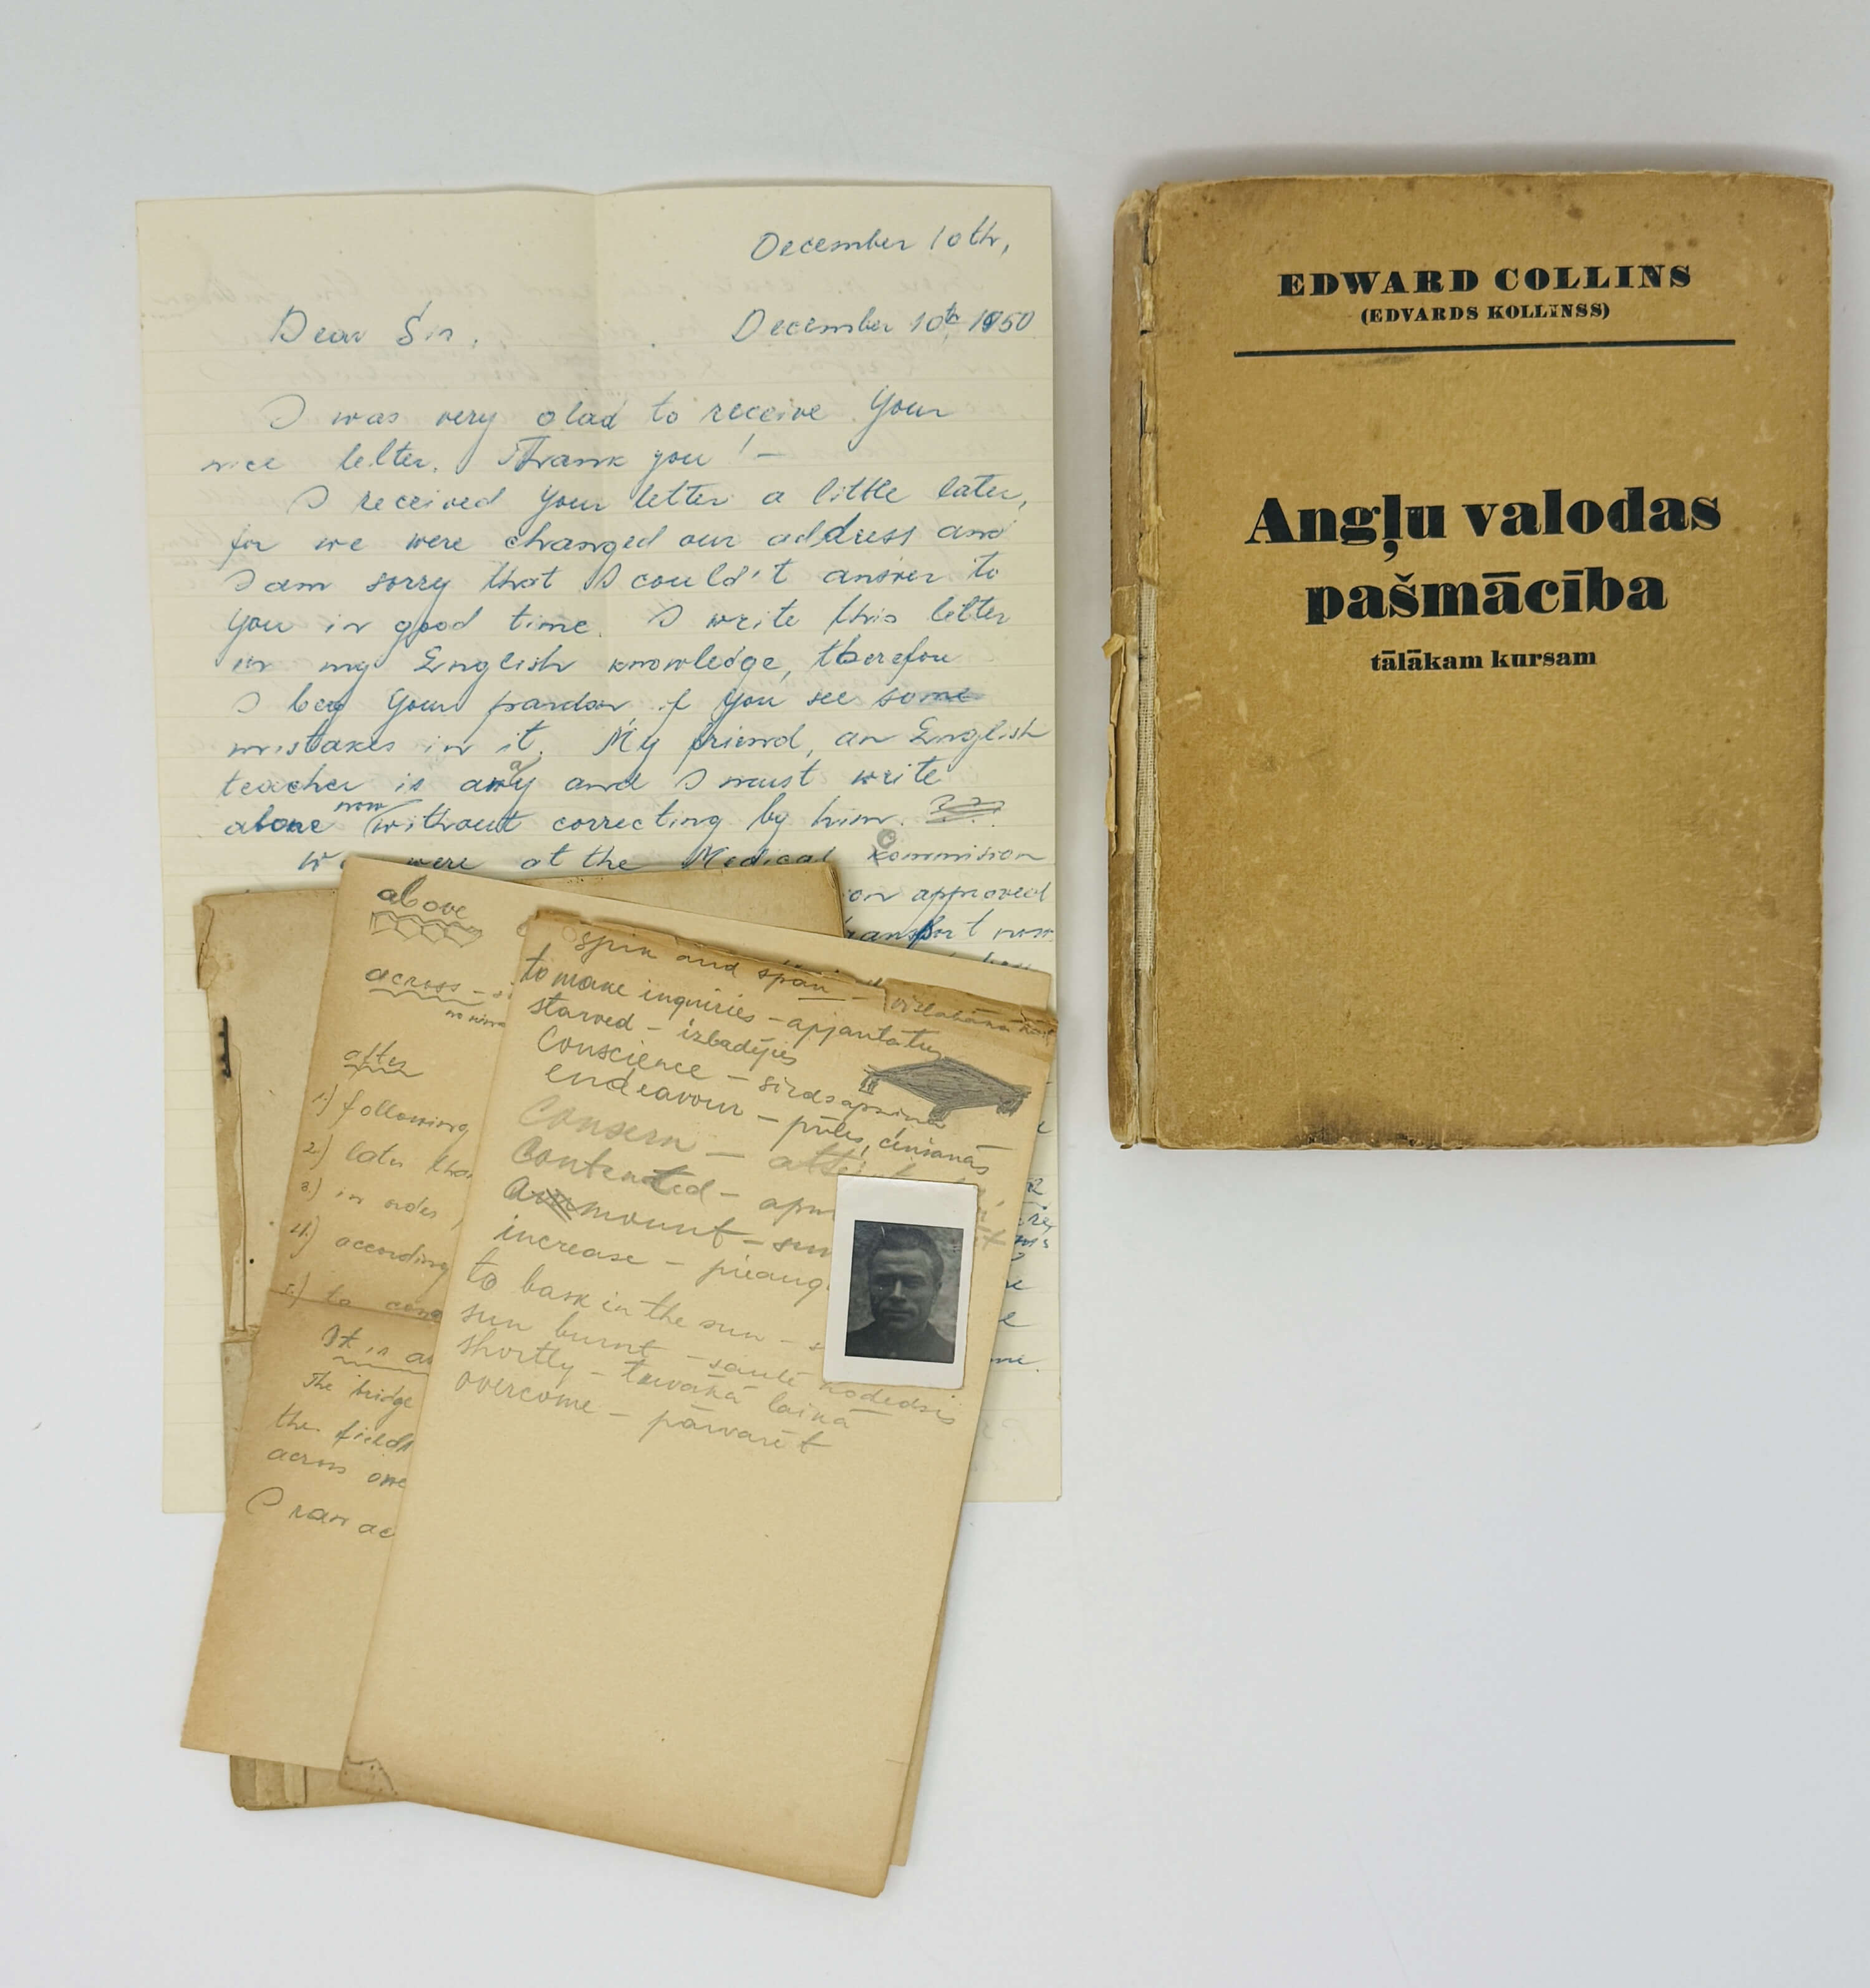 December 10th,
Dear Sir, December 10th 1950
I was very glad to receive Your
nice letter. Thank you! –
I received Your letter a little later,
for we were changed our address and
I am sorry that I could't answer to
you in good time. I write this letter
in my English knowledge, therefore
I beg Your pardon, if You see some
mistakes in it. My friend, an English
teacher is away and I must write
alone now without correcting by him.
We were at the Medical Commision
on approved
now
above
across –
after
1.) following
2.) later than
3.) in order
4.) according
5.) to
It is
The bridge
the fields
across one
I ran ac
spik and span –
to make inquiries – apjautāties
starved – izbadējies
Conscience – sirdsapziņa
endeavour – pūles, cenšanās
Consern –
Contented –
Ammount –
increase –
to bask in the sun –
sun burnt – saulē nodedzis
shortly – tuvākā laikā
overcome – pārvarēt
EDWARD COLLINS
(EDVARDS KOLLINSS)
Angļu valodas
pašmācība
tālākam kursam